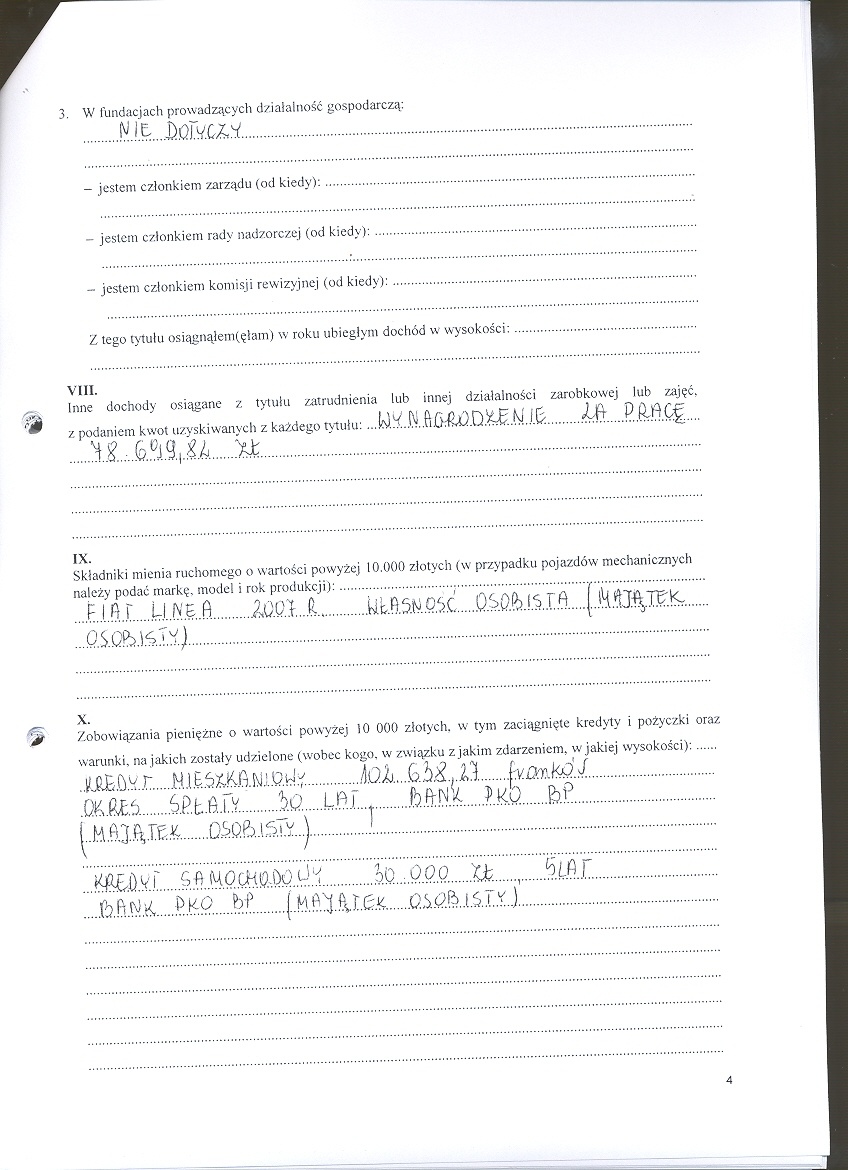 3. W fundacjach prowadzących działalność gospodarczą:
NIE DOTYCZY
– jestem członkiem zarządu (od kiedy):
– jestem członkiem rady nadzorczej (od kiedy):
– jestem członkiem komisji rewizyjnej (od kiedy):
Z tego tytułu osiągnąłem(ęłam) w roku ubiegłym dochód w wysokości:
VIII.
Inne dochody osiągane z tytułu zatrudnienia lub innej działalności zarobkowej lub zajęć,
z podaniem kwot uzyskiwanych z każdego tytułu: WYNAGRODZENIE ZA PRACĘ
78.699,82 zł
IX.
Składniki mienia ruchomego o wartości powyżej 10.000 złotych (w przypadku pojazdów mechanicznych
należy podać markę, model i rok produkcji):
FIAT LINEA 2007 R. WŁASNOŚĆ OSOBISTA (MAJĄTEK
OSOBISTY)
X.
Zobowiązania pieniężne o wartości powyżej 10 000 złotych, w tym zaciągnięte kredyty i pożyczki oraz
warunki, na jakich zostały udzielone (wobec kogo, w związku z jakim zdarzeniem, w jakiej wysokości):
KREDYT MIESZKANIOWY 102 638,27 franków
OKRES SPŁATY 30 LAT, BANK PKO BP
(MAJĄTEK OSOBISTY)
KREDYT SAMOCHODOWY 30 000 ZŁ, 5 LAT
BANK PKO BP (MAJĄTEK OSOBISTY)
4